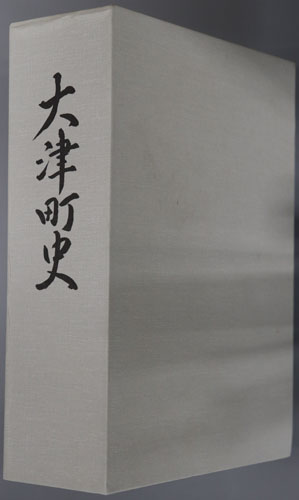 大津町史